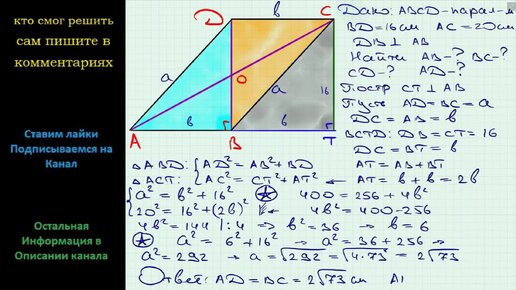 кто смог решить
сам пишите в
комментариях
Ставим лайки
Подписываемся на
Канал
Остальная
Информация в
Описании канала
D b C
a O a 16
A b B b T
Дано: ABCD-парал-м
BD=16см AC=20см
DB⊥AB
Найти AB-? BC-?
CD-? AD-?
Постр CT⊥AB
Пусть AD=BC=a
DC=AB=b
BCTD: DB=CT=16
DC=BT=b
△ABD: {AD²=AB²+BD² AT=AB+BT
△ACT: {AC²=CT²+AT² ← AT=b+b=2b
{a²=b²+16² ✡ 400=256+4b²
{20²=16²+(2b)² 4b²=400-256
4b²=144 |:4 → b²=36 → b=6
✡ a²=6²+16² → a²=36+256 →
a²=292 → a=√292=√4·73=2√73
Ответ: AD=BC=2√73см